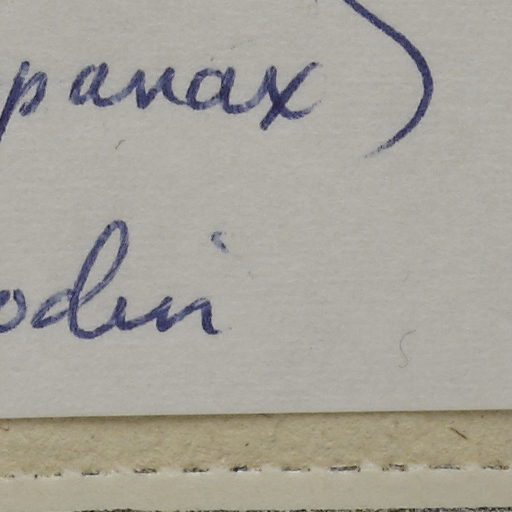 panax)
odin